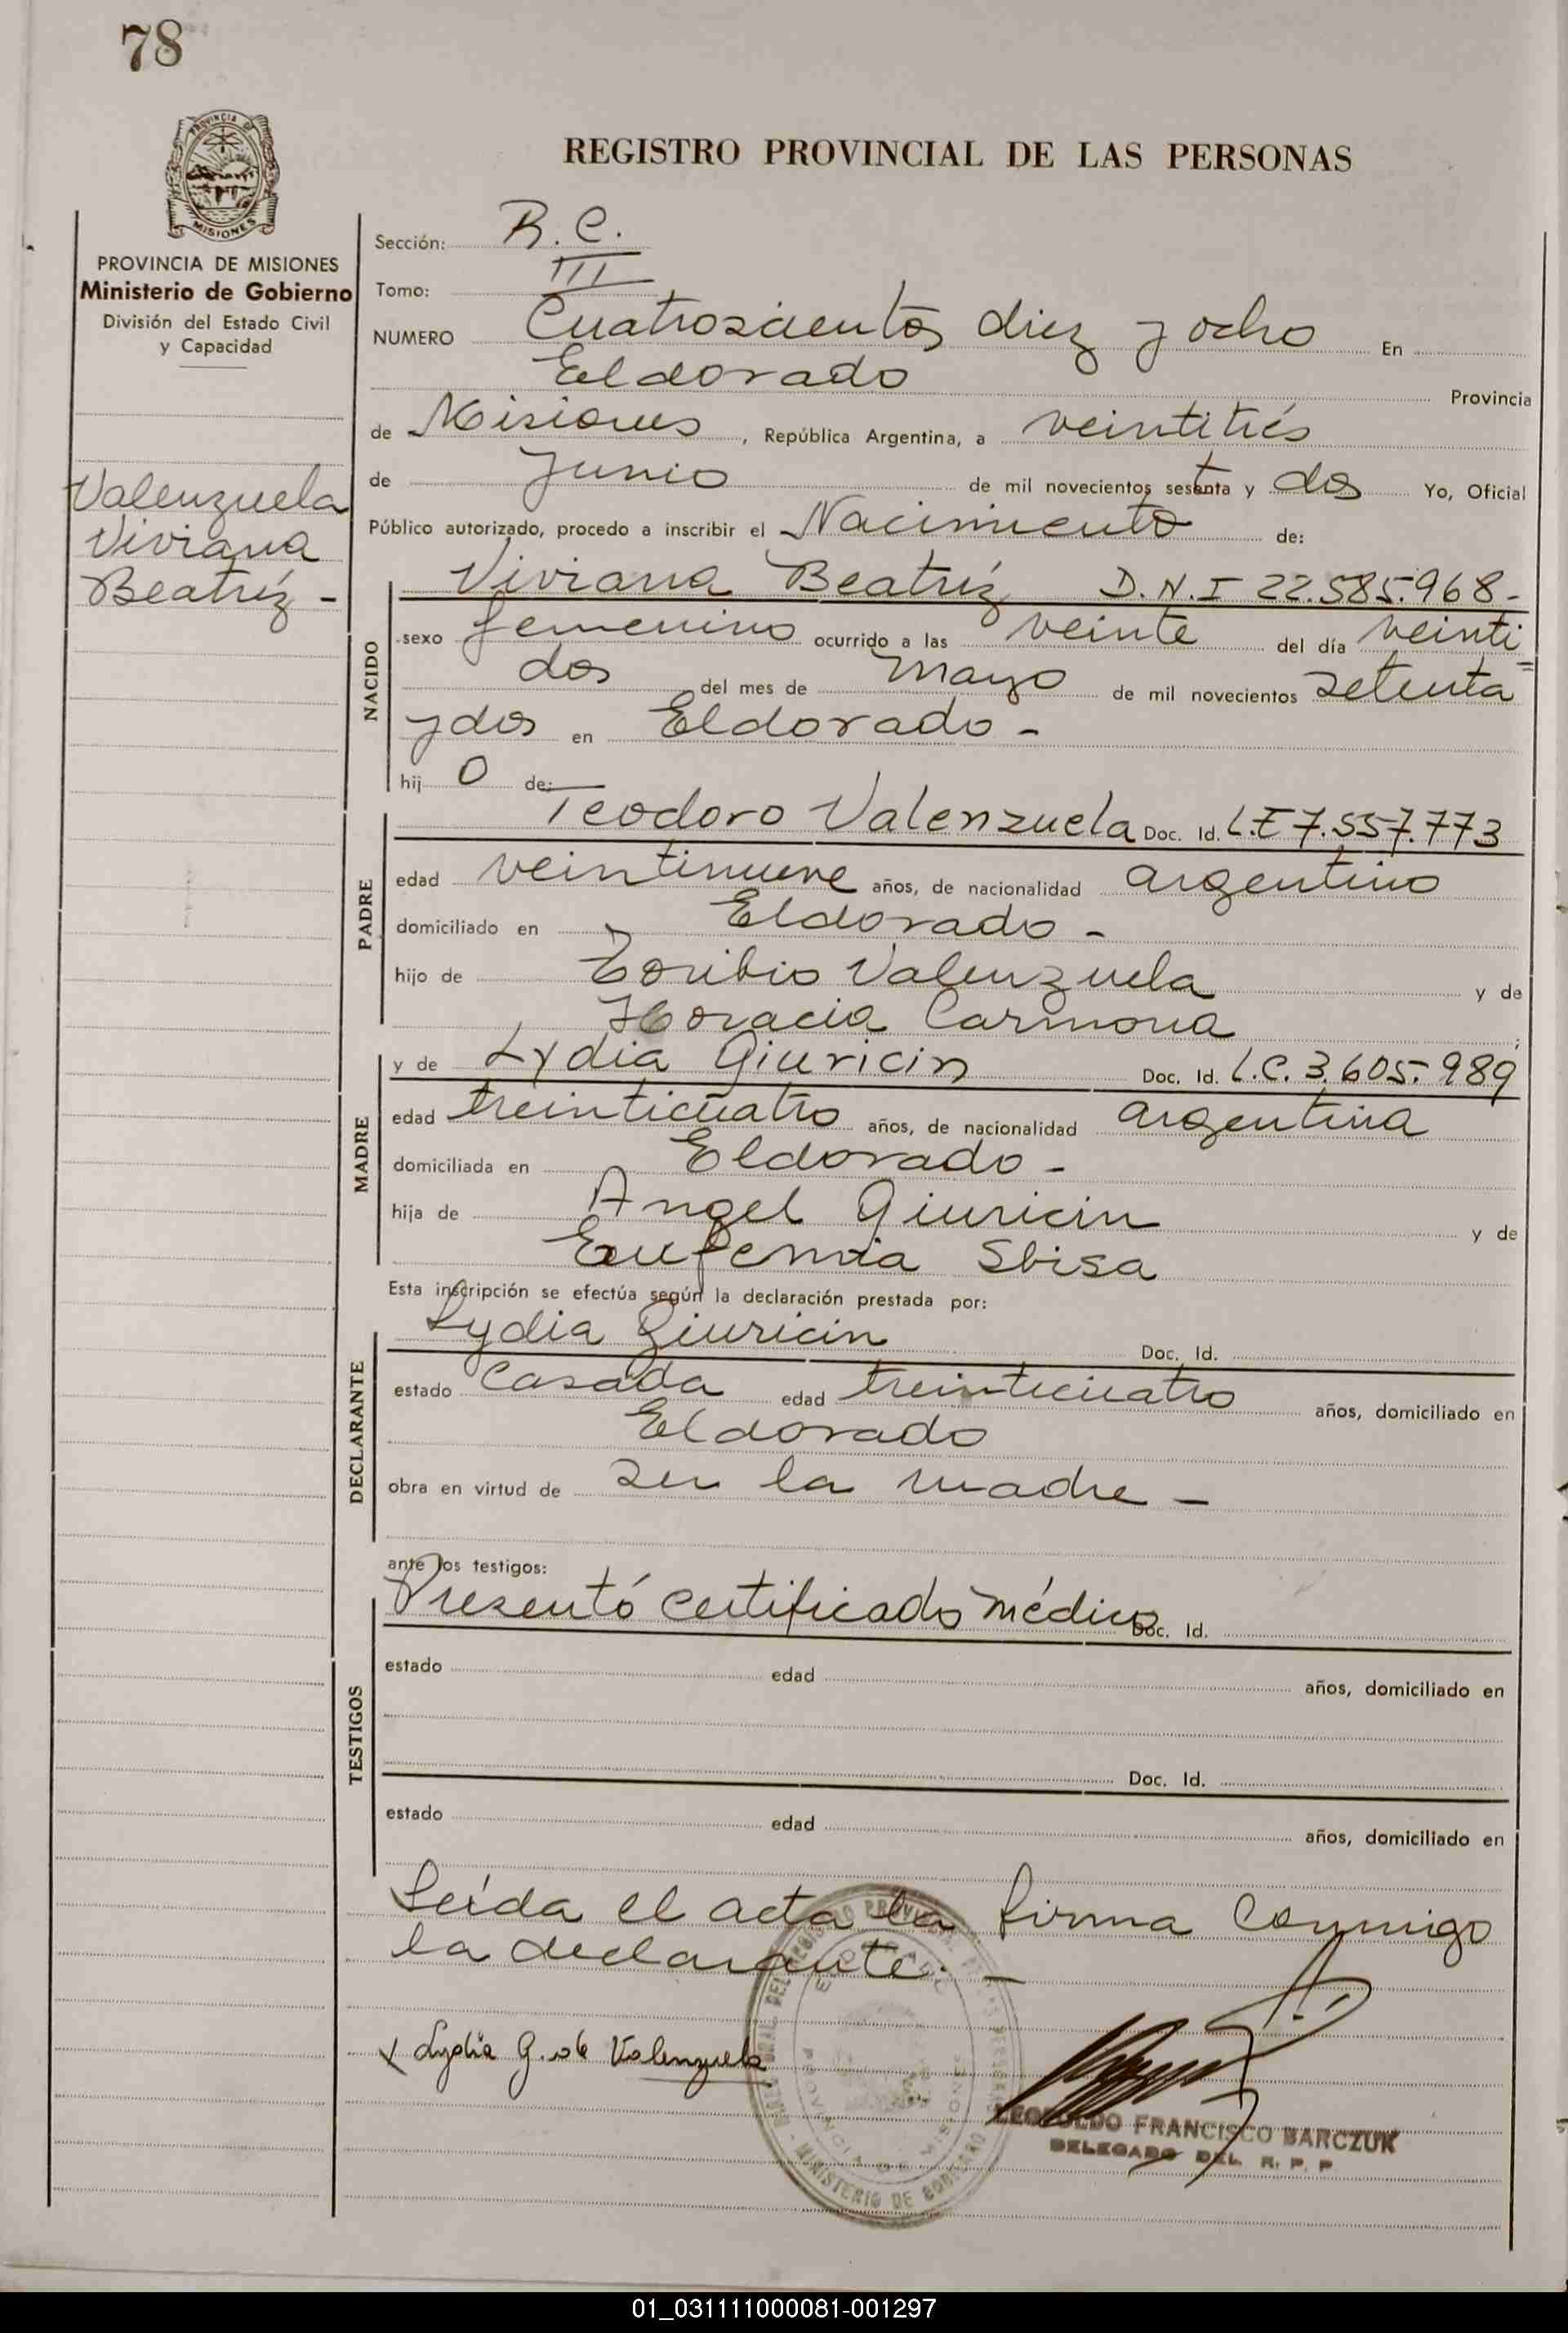 78
PROVINCIA DE
MISIONES
REGISTRO PROVINCIAL DE LAS PERSONAS
PROVINCIA DE MISIONES
Ministerio de Gobierno
División del Estado Civil
y Capacidad
Valenzuela
Viviana
Beatríz -
Sección: R. C.
Tomo: III
NUMERO Cuatroscientos diez y ocho En
Eldorado Provincia
de Misiones, República Argentina, a veintitrés
de Junio de mil novecientos setenta y dos Yo, Oficial
Público autorizado, procedo a inscribir el Nacimiento de:
NACIDO
Viviana Beatríz D.N.I 22.585.968-
sexo femenino ocurrido a las veinte del día veinti=
dos del mes de mayo de mil novecientos setenta
y dos en Eldorado -
hij o de:
PADRE
Teodoro Valenzuela Doc. Id. L.E 7.557.773
edad veintinueve años, de nacionalidad argentino
domiciliado en Eldorado -
hijo de Toribio Valenzuela y de
Horacia Carmona ;
MADRE
y de Lydia Giuricin Doc. Id. L.C. 3.605.989
edad treinticuatro años, de nacionalidad argentina
domiciliada en Eldorado -
hija de Angel Giuricin y de
Eufemia Sbisa
Esta inscripción se efectúa según la declaración prestada por:
DECLARANTE
Lydia Giuricin Doc. Id.
estado casada edad treinticuatro años, domiciliado en
Eldorado
obra en virtud de ser la madre -
ante los testigos:
TESTIGOS
Presentó certificado médico Doc. Id.
estado edad años, domiciliado en
Doc. Id.
estado edad años, domiciliado en
Leída el acta la firma conmigo
la declarante. -
x Lydia G. de Valenzuela
LEOPOLDO FRANCISCO BARCZUK
DELEGADO DEL R. P. P
MINISTERIO DE GOBIERNO
PROVINCIA DE MISIONES
01_031111000081-001297